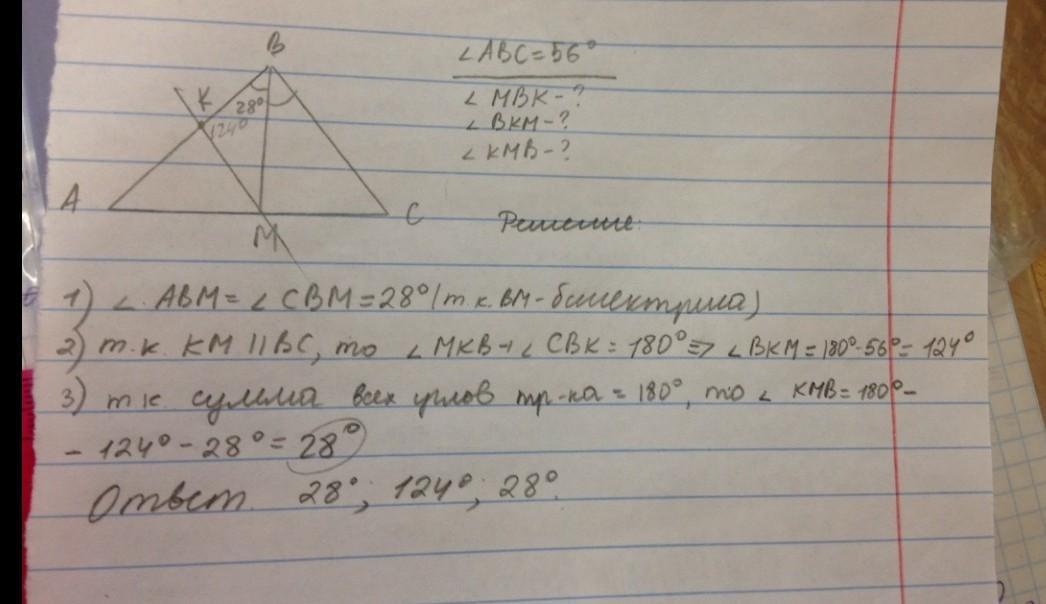 B
∠ABC=56°
K
28°
∠ MBK-?
124°
∠ BKM-?
∠ KMB-?
A
C
M
Решение:
1) ∠ ABM= ∠ CBM=28° (т.к. BM-биссектриса)
2) т.к. KM || BC, то ∠ MKB+∠ CBK=180°=> ∠ BKM=180°-56°= 124°
3) т.к. сумма всех углов тр-ка = 180°, то ∠ KMB= 180°-
- 124° - 28° = 28°
Ответ. 28°; 124°; 28°.